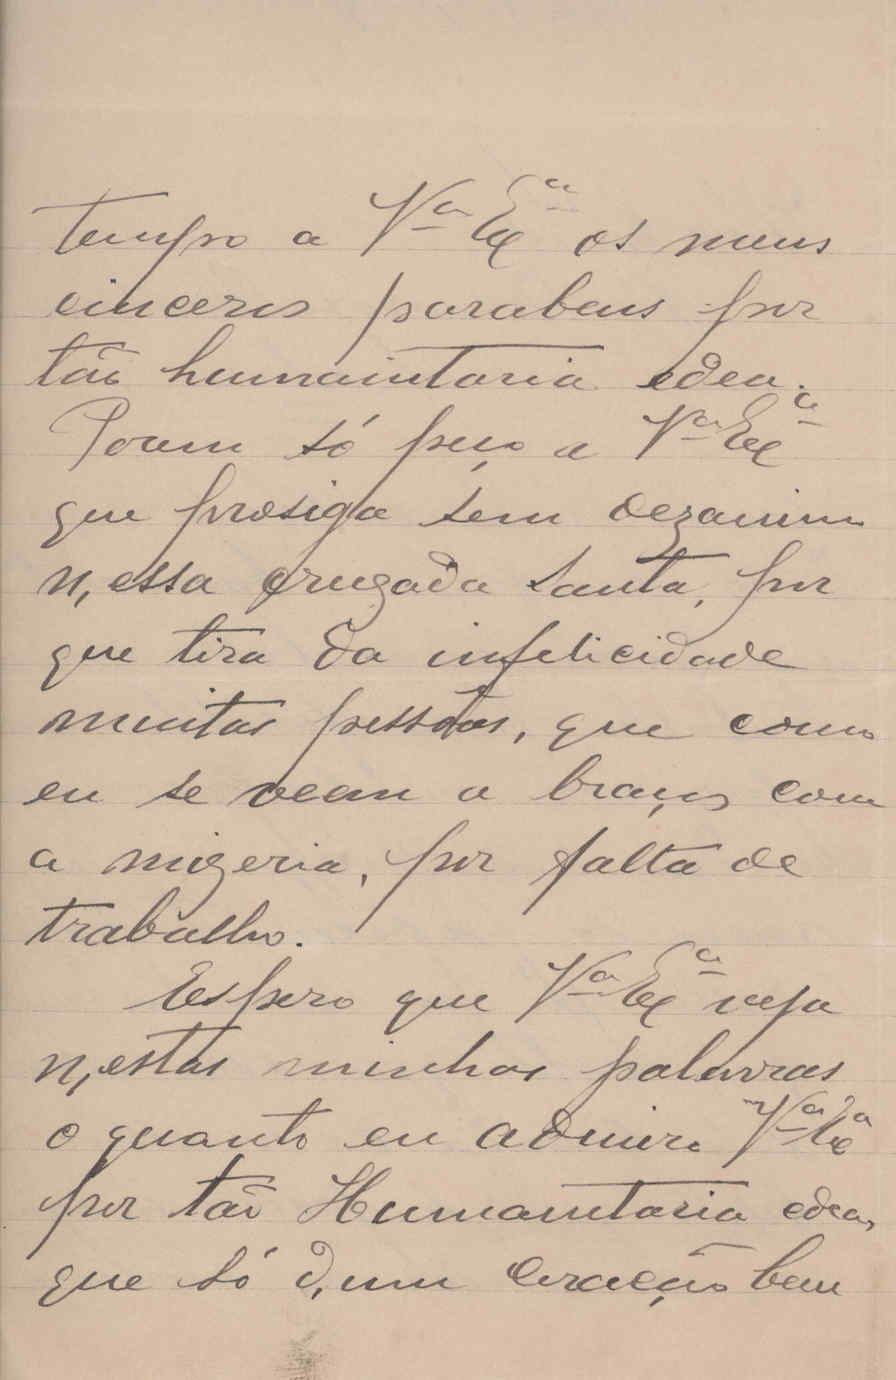 tempo a Vª Exª os meus
cinceros parabens por
tão humanitaria edea.
Poem só peço a Vª Exª
que prosiga sem dezanimo
n,essa cruzada santa, por
que tira da infelicidade
muitas pessõas, que como
eu se veem a braços com
a mizeria, por falta de
trabalho.
Espero que Vª Exª veja
n,estas minhas palavras
o quanto eu admiro Vª Exª
por tão Humanitaria edea,
que só d,um coração bem